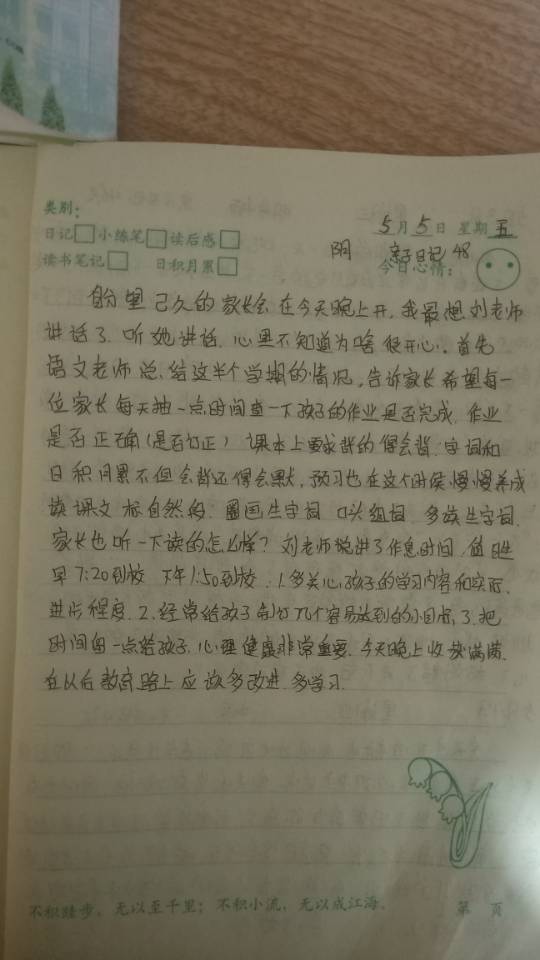 类别:
5月5日 星期五
日记 小练笔 读后感
阴 亲子日记 48
读书笔记 日积月累 今日心情:
盼望已久的家长会在今天晚上开,我最想刘老师
讲话了.听她讲话.心里不知道为啥很开心。首先
语文老师总结这半个学期的情况,告诉家长希望每一
位家长每天抽一点时间查一下孩子的作业是否完成.作业
是否正确(是否订正)课本上要求背的得会背.字词和
日积月累不但会背还得会默,预习也在这个时候慢慢养成
读课文标自然段.圈画生字词 口头组词.多读生字词.
家长也听一下读的怎么样?刘老师说讲了作息时间.值日生
早7:20到校 下午1:50到校.1.多关心孩子的学习内容和实际.
进步程度.2.经常给孩子制订几个容易达到的小目标,3.把
时间留一点给孩子.心理健康非常重要.今天晚上收获满满.
在以后教育路上应该多改进.多学习.
不积跬步,无以至千里;不积小流,无以成江海。 第 页